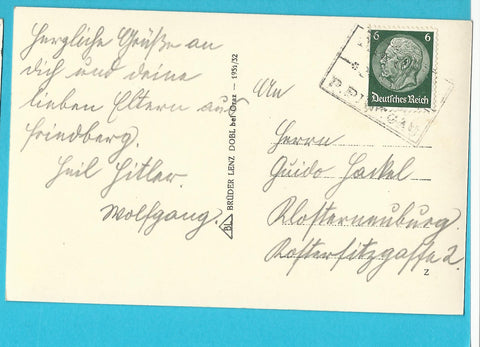 Herzliche Grüße an
dich und deine
lieben Eltern aus
Friedberg.
Heil Hitler.
Wolfgang.
BRÜDER LENZ DOBL bei Graz - 1951/52
An
Herrn
Guido Hackel
Klosterneuburg.
Kosterfitzgasse 2.
Z
6 6
Deutsches Reich